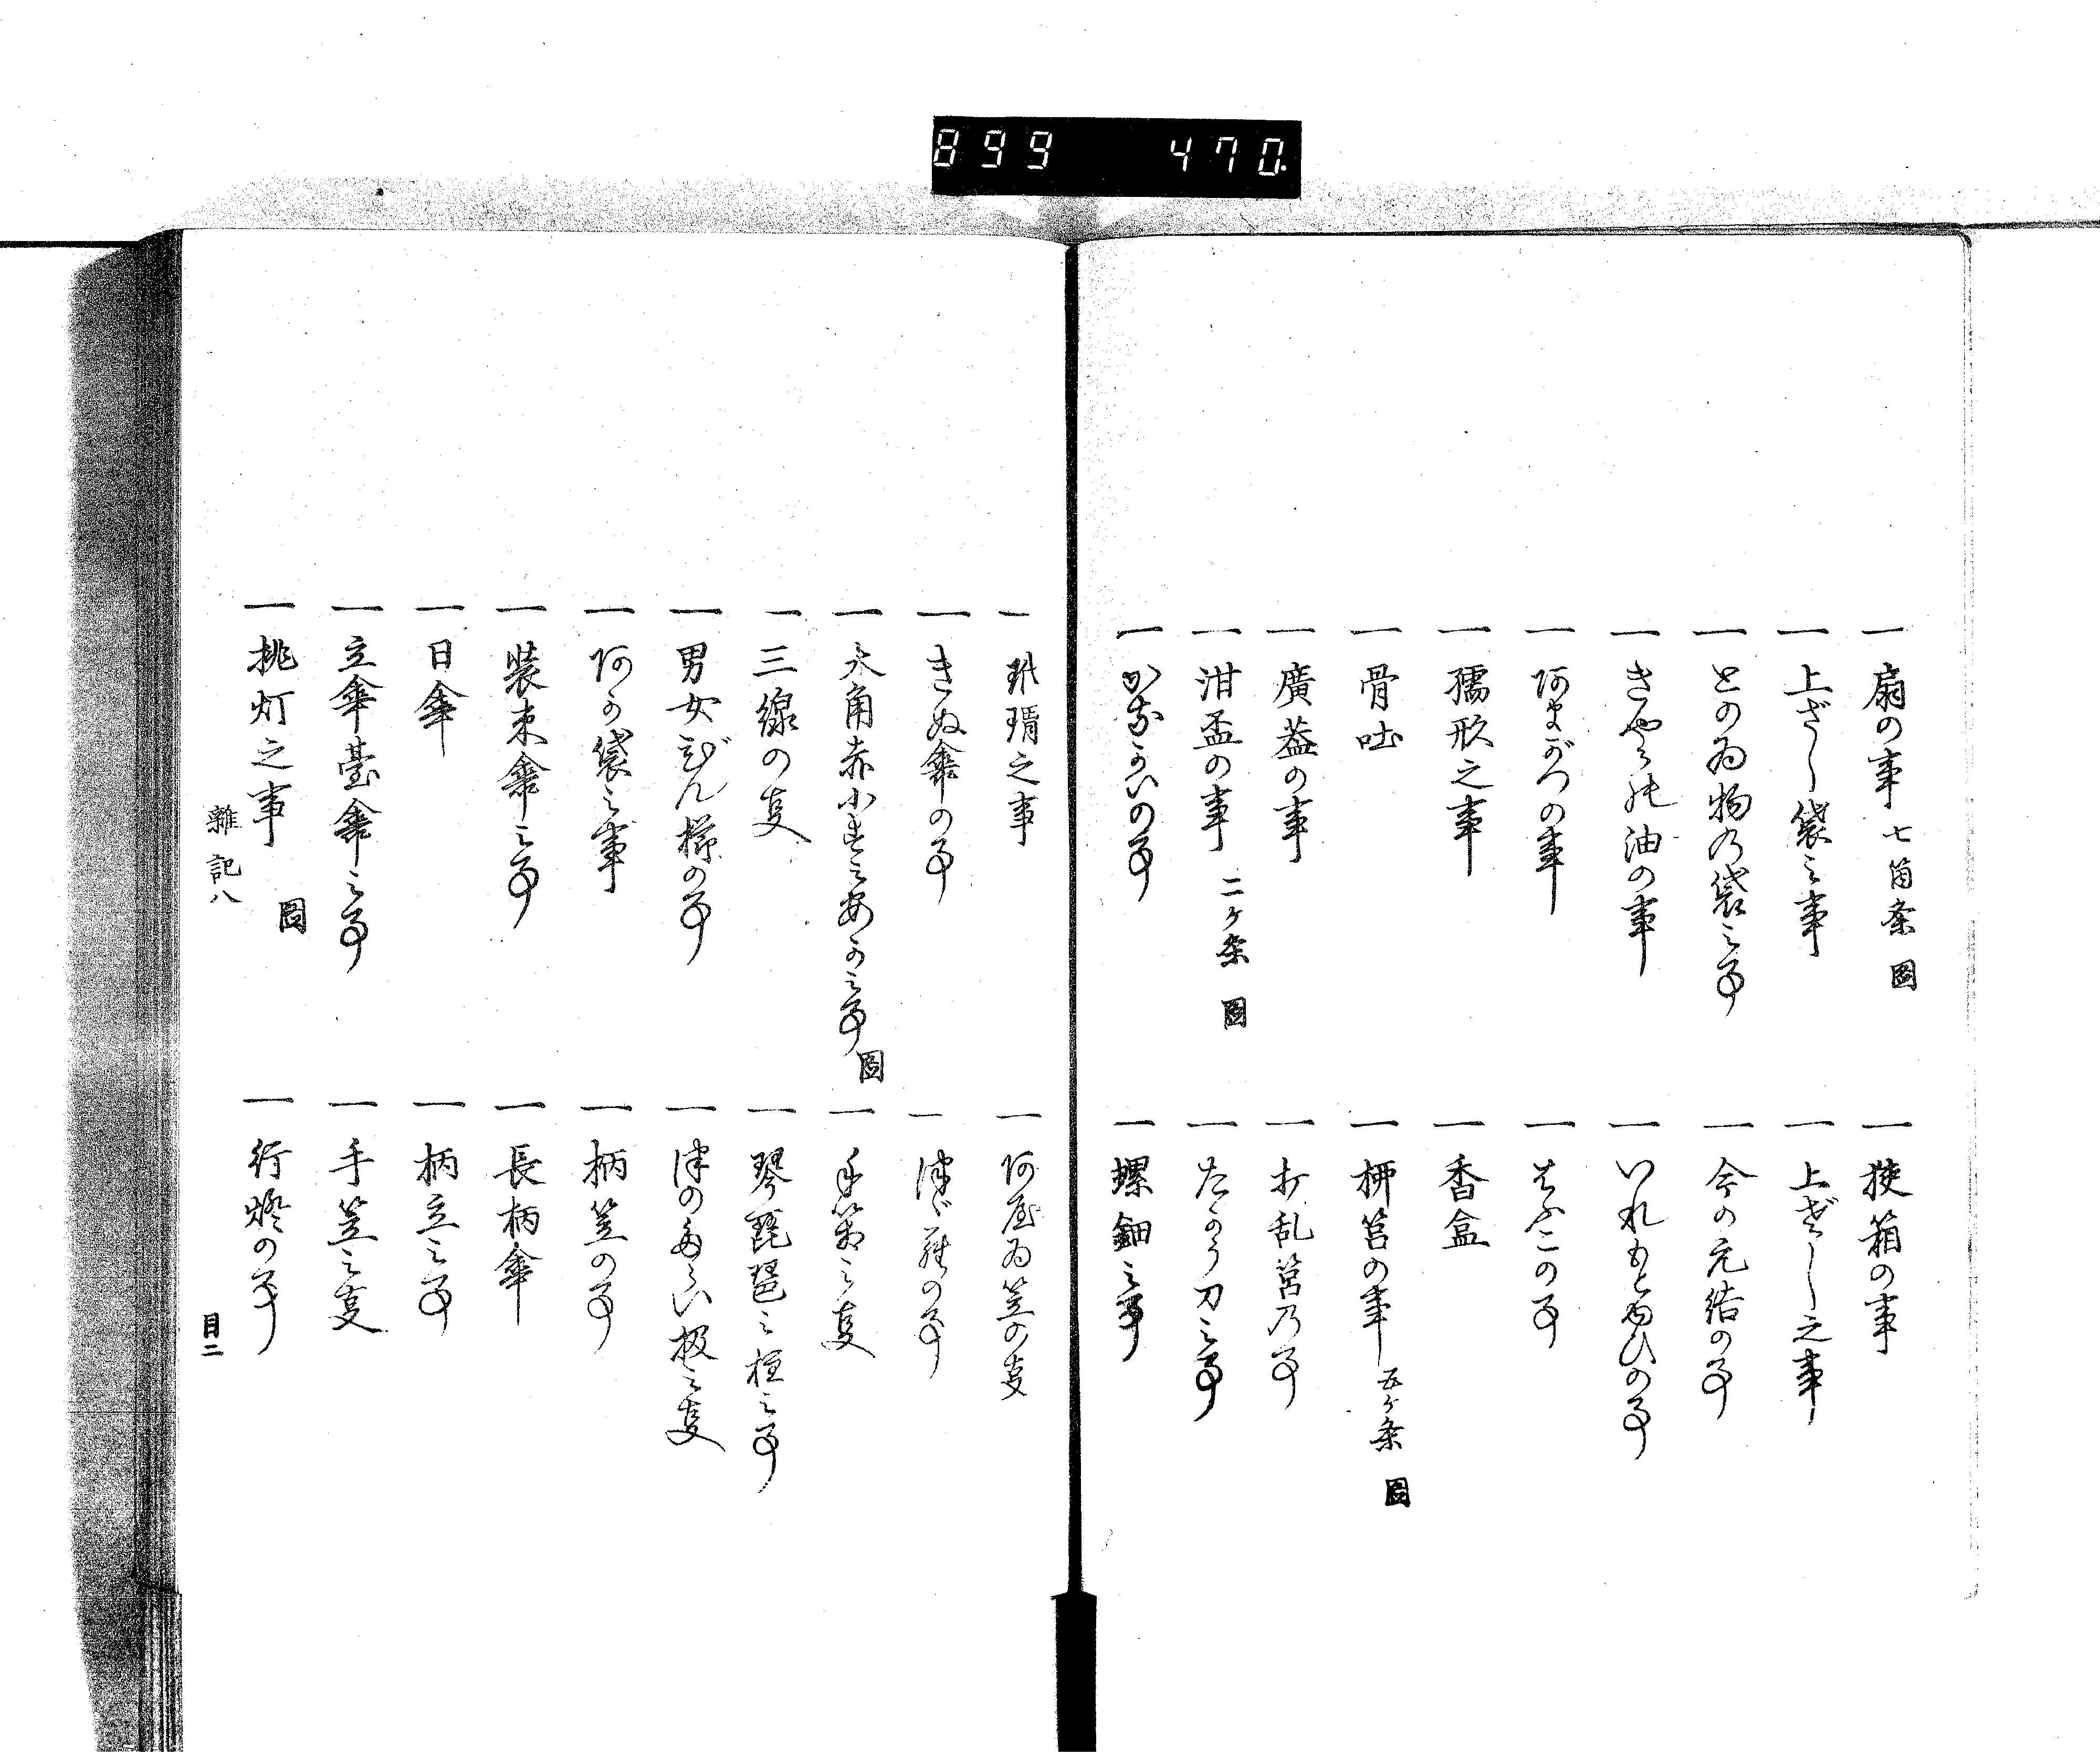 899 470
一 扇の事 七箇条 圖
一 挾箱の事
一 上ざし袋之事
一 上ざし之事
一 とのゐ物の袋之事
一 今の元結の事
一 きやらの油の事
一 いれもとゆひの事
一 あまがつの事
一 はふこの事
一 孺形之事
一 香盒
一 骨吐
一 柳筥の事 五ケ条 圖
一 廣蓋の事
一 打乱筥乃事
一 泔盃の事 二ケ条 圖
一 たかう刀之事
一 かながいの事
一 螺鈿之事
一 玳瑁之事
一 あやゐ笠の事
一 きぬ傘の事
一 つゞらの事
一 之事 圖
一 之事
一 三線の事
一 琴琵琶之柱之事
一 男女びん櫛の事
一 つのだらい 之事
一 あか袋之事
一 柄笠の事
一 装束傘之事
一 長柄傘
一 日傘
一 柄立之事
一 立傘臺傘之事
一 手笠之事
一 挑灯之事 圖
一 行燈の事
雜記八 目二